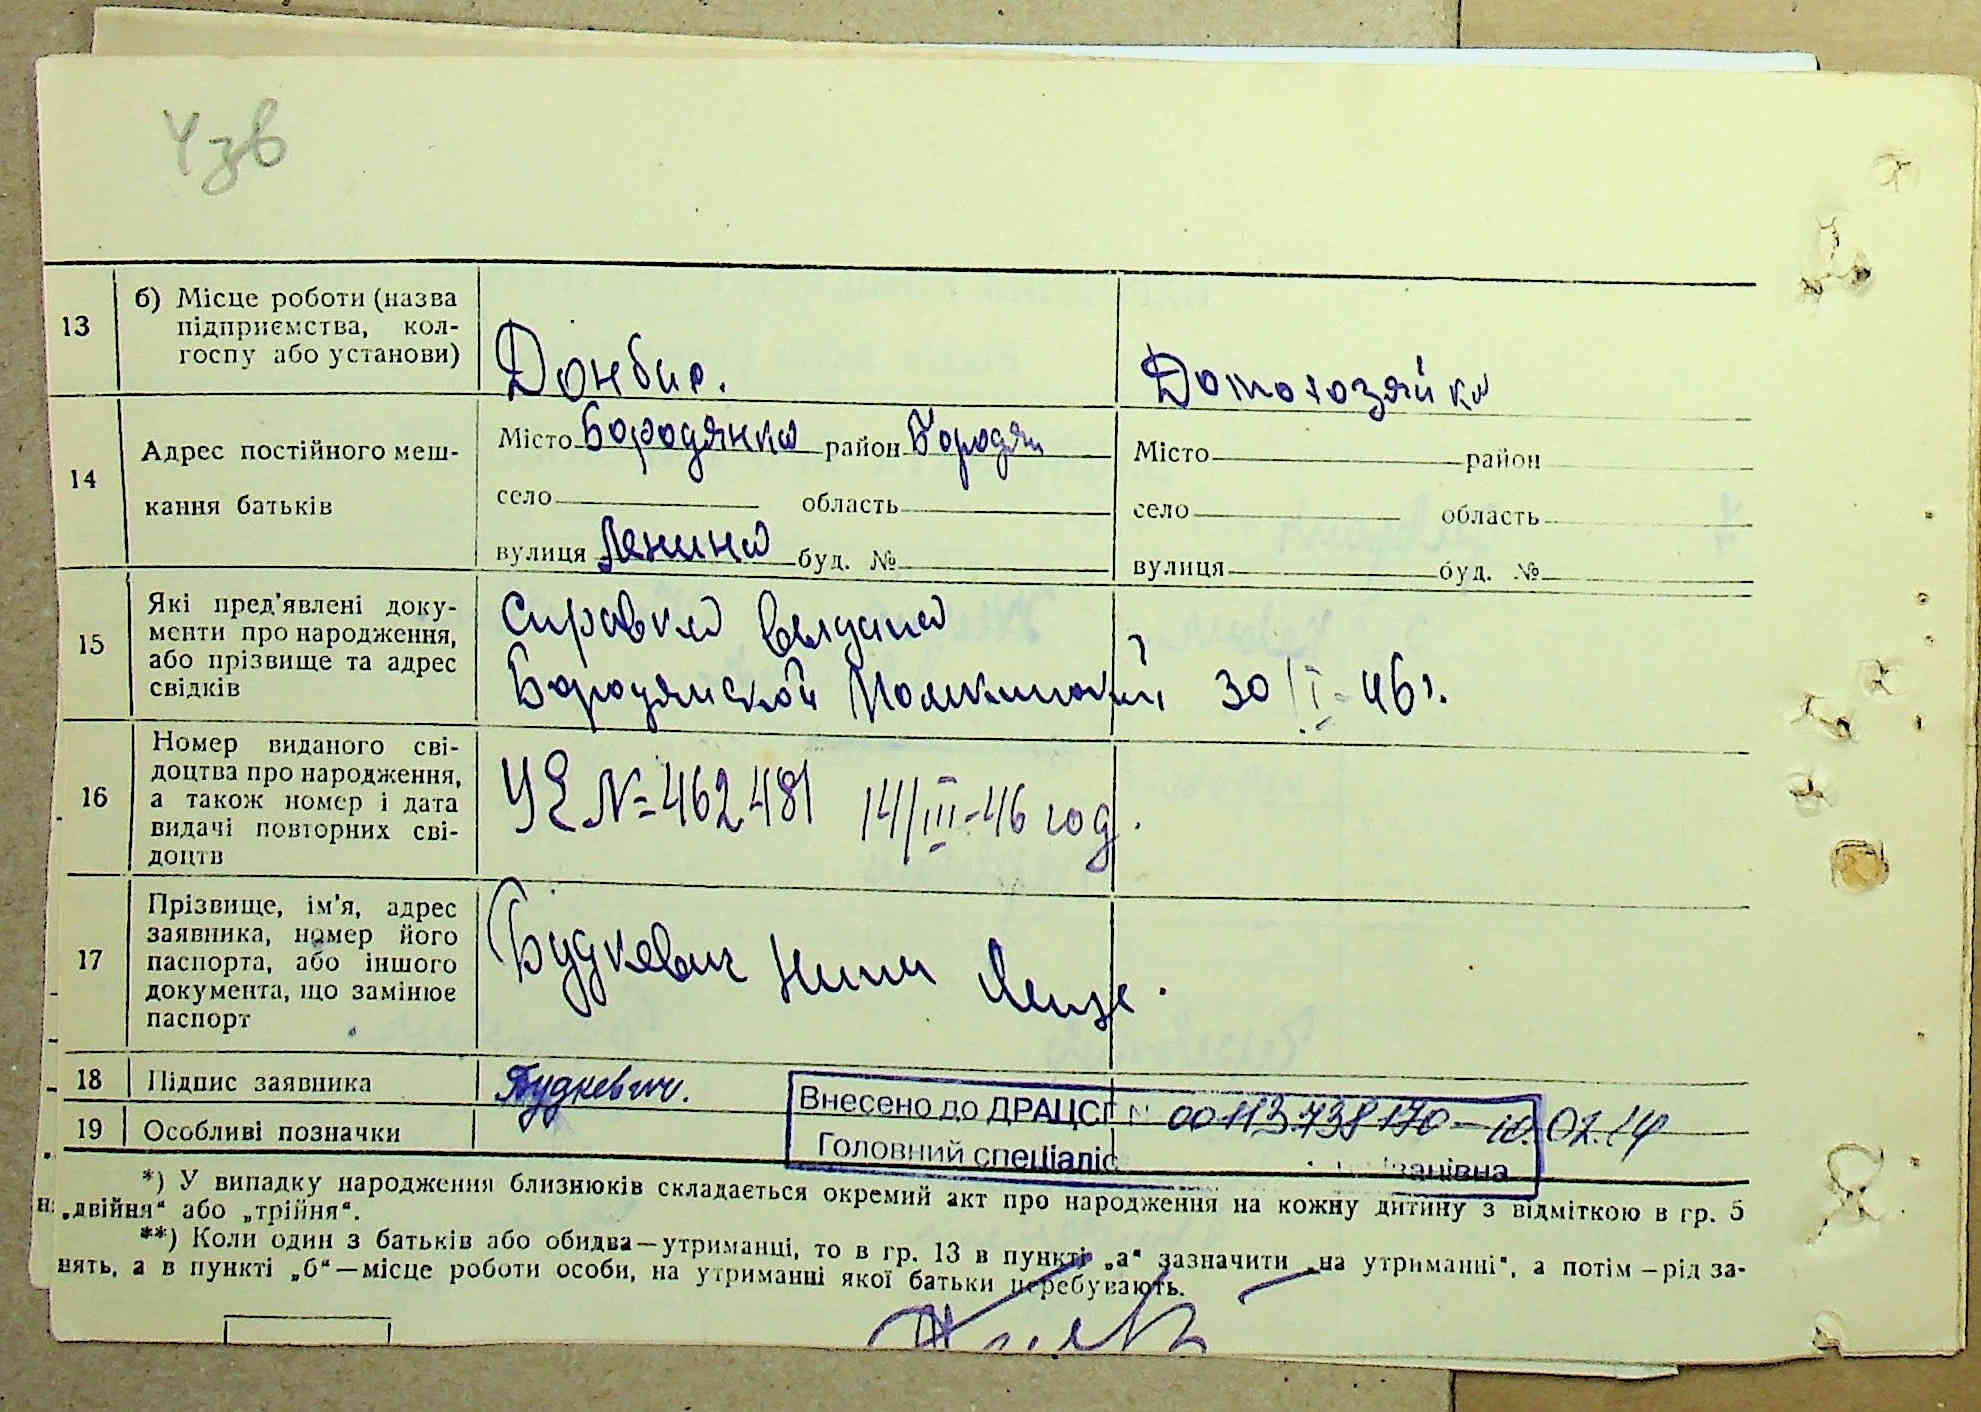 Узв
13
б) Місце роботи (назва
підприємства, кол-
госпу або установи)
Донбас.
Домохозяйка
14
Адрес постійного меш-
кання батьків
Місто Бородянка район Бородян
село область
вулиця Ленина буд. №
Місто район
село область
вулиця буд. №
15
Які пред'явлені доку-
менти про народження,
або прізвище та адрес
свідків
Справка выдана
Бородянской 30/I-46г.
16
Номер виданого сві-
доцтва про народження,
а також номер і дата
видачі повторних сві-
доцтв
УЕ №462481 14/III-46 год.
17
Прізвище, ім'я, адрес
заявника, номер його
паспорта, або іншого
документа, що замінює
паспорт
Будкевич Нина
18
Підпис заявника
Будкевич.
19
Особливі позначки
Внесено до ДРАЦСГ № 00113738170 - 10.02.14
Головний спеціаліс
*) У випадку народження близнюків складається окремий акт про народження на кожну дитину з відміткою в гр. 5
„двійня“ або „трійня“.
**) Коли один з батьків або обидва—утриманці, то в гр. 13 в пункті „а“ зазначити „на утриманні“, а потім—рід за-
нять, а в пункті „б“—місце роботи особи, на утриманні якої батьки перебувають.